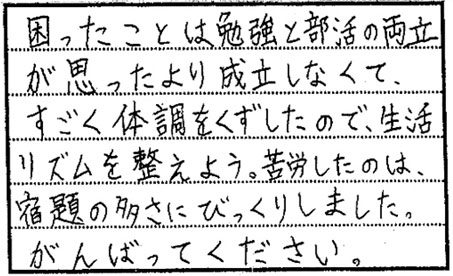 困ったことは勉強と部活の両立
が思ったより成立しなくて、
すごく体調をくずしたので、生活
リズムを整えよう。苦労したのは、
宿題の多さにびっくりしました。
がんばってください。